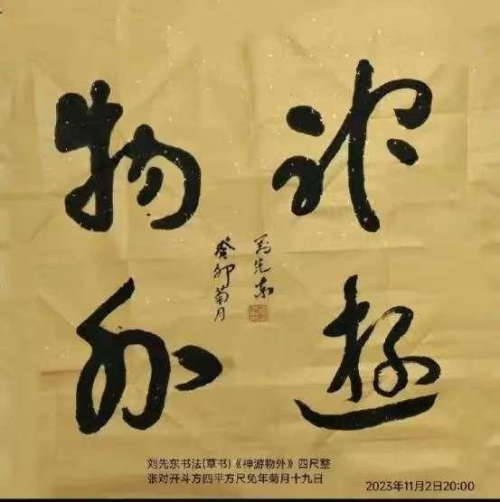 神遊
物外
癸卯菊月
刘先东
刘先东书法(草书)《神游物外》四尺整
张对开斗方四平方尺兔年菊月十九日
2023年11月2日20:00